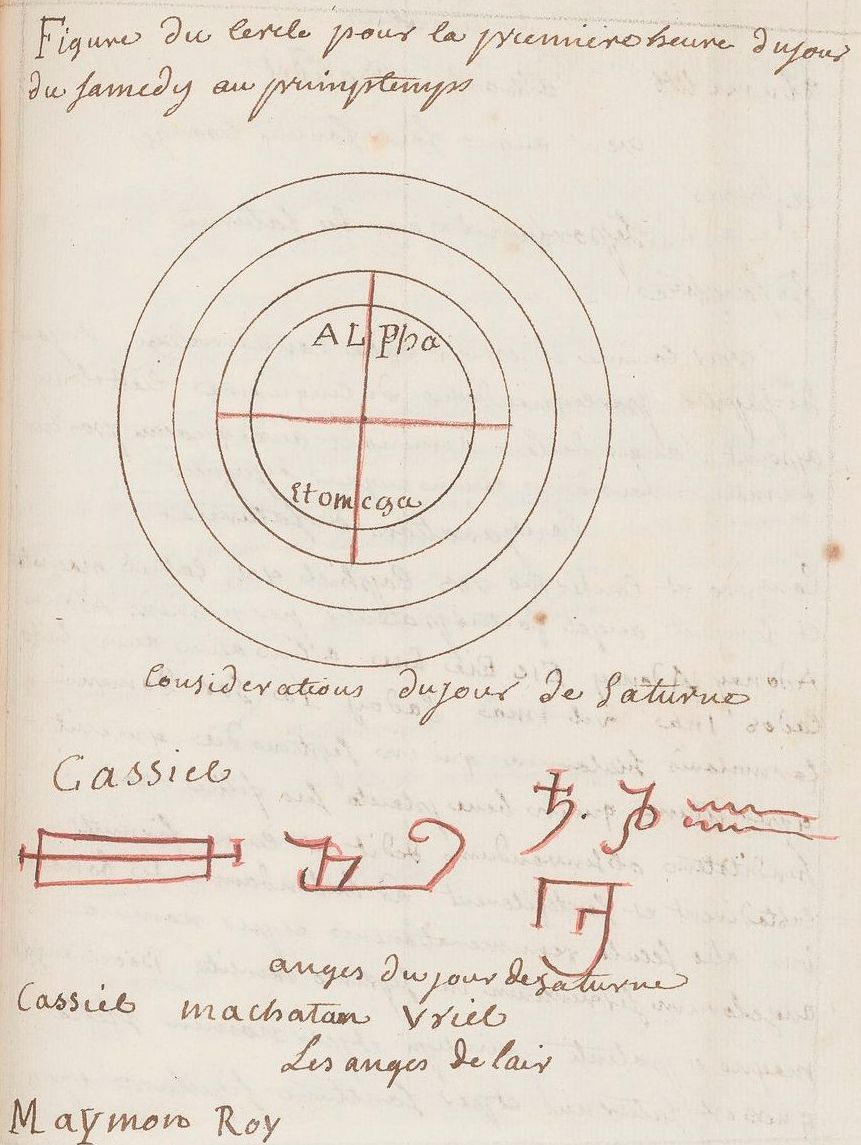 Figure du cercle pour la premiere heure du jour
du samedy au primptemps
ALPha
et omega
Considerations du jour de Saturne
Cassiel
♄. ♑ ♒
anges du jour de Saturne
Cassiel machatan Vriel
Les anges de lair
Maymon Roy